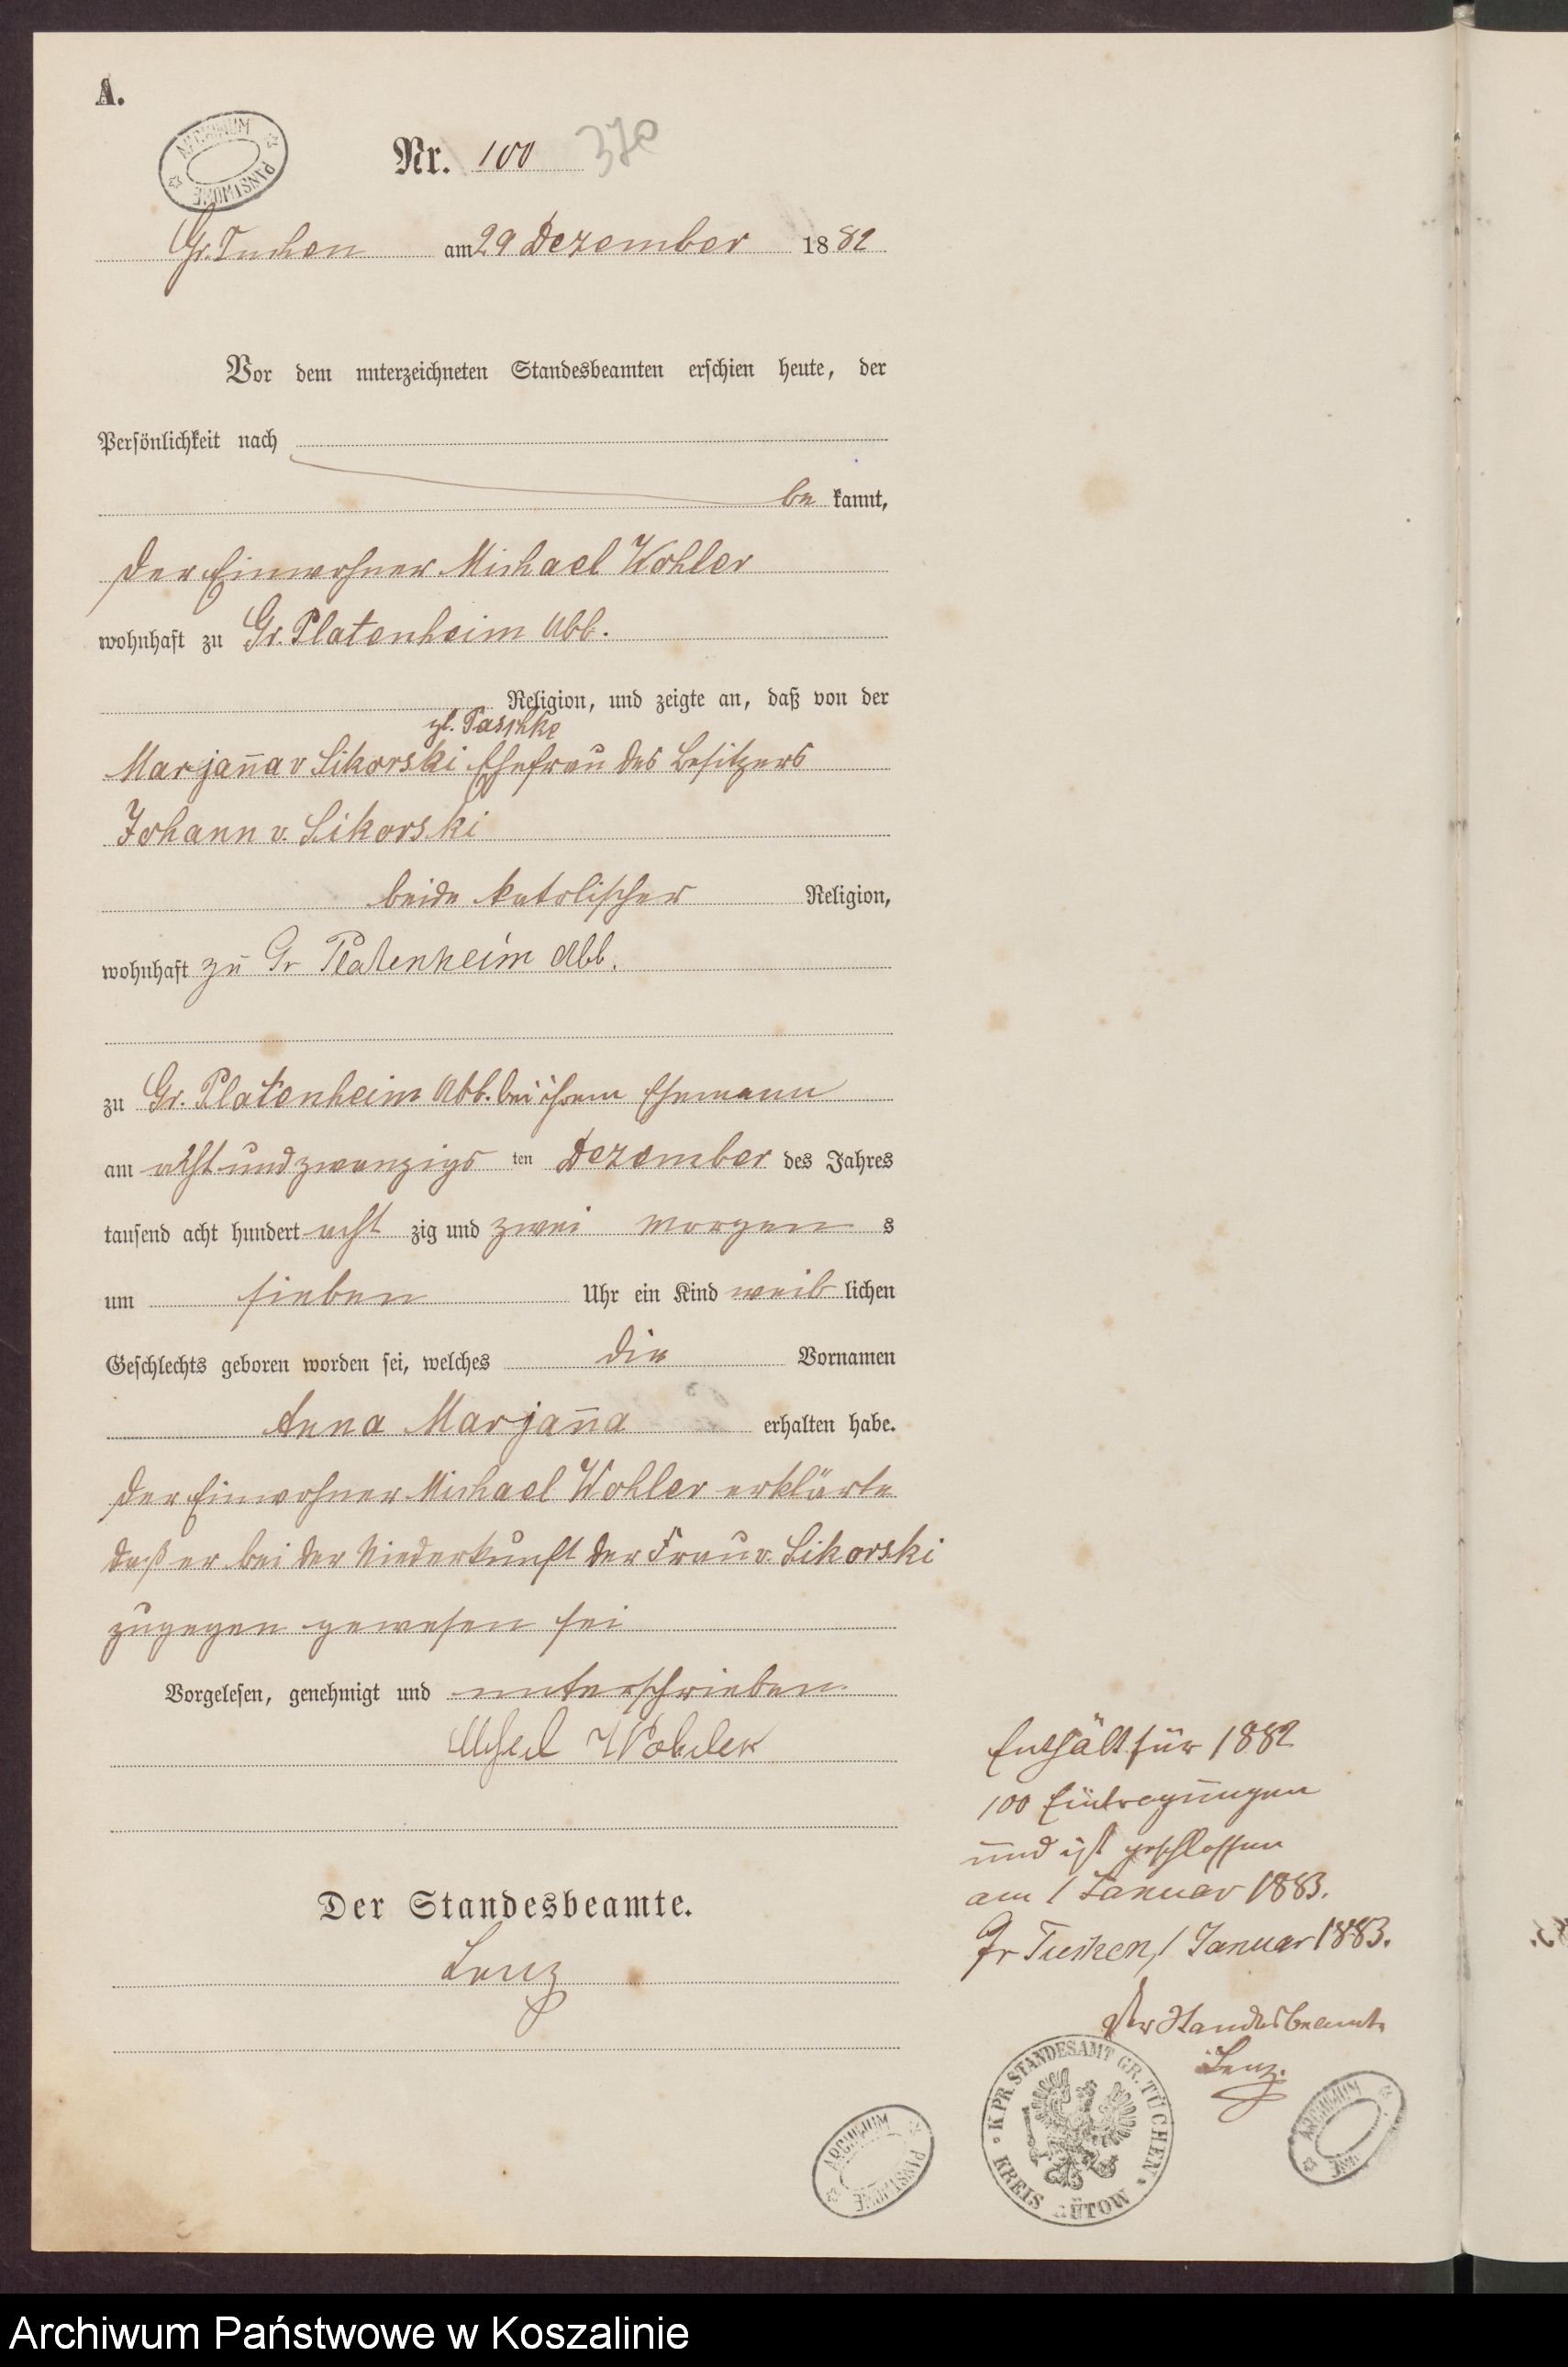 A.
ARCHIWUM PAŃSTWOWE
Nr. 100 370
Gr. Tuchen am 29 Dezember 1882
Vor dem unterzeichneten Standesbeamten erschien heute, der
Persönlichkeit nach
be kannt,
der Einwohner Michael Wohler
wohnhaft zu Gr. Platenheim Abb.
Religion, und zeigte an, daß von der
Paschke
Marjan̄a v Sikorski Ehefrau des Besitzers
Johann v. Sikorski
beide katolischer Religion,
wohnhaft zu Gr Platenheim Abb.
zu Gr. Platenheim Abb. bei ihrem Ehemann
am acht und zwanzigs ten Dezember des Jahres
tausend acht hundert acht zig und zwei morgen s
um sieben Uhr ein Kind weib lichen
Geschlechts geboren worden sei, welches die Vornamen
Anna Marjan̄a erhalten habe.
der Einwohner Michael Wohler erklärte
daß er bei der Niederkunft der Frau v. Sikorski
zugegen gewesen sei
Vorgelesen, genehmigt und unterschrieben
Der Standesbeamte.
Lenz
Enthält für 1882
100 Eintragungen
und ist geschlossen
am 1 Januar 1883.
Gr Tuchen, 1 Januar 1883.
Der Standesbeamte
Lenz.
K. PR. STANDESAMT GR. TUCHEN
KREIS BÜTOW
ARCHIWUM PAŃSTWOWE
ARCHIWUM
Archiwum Państwowe w Koszalinie